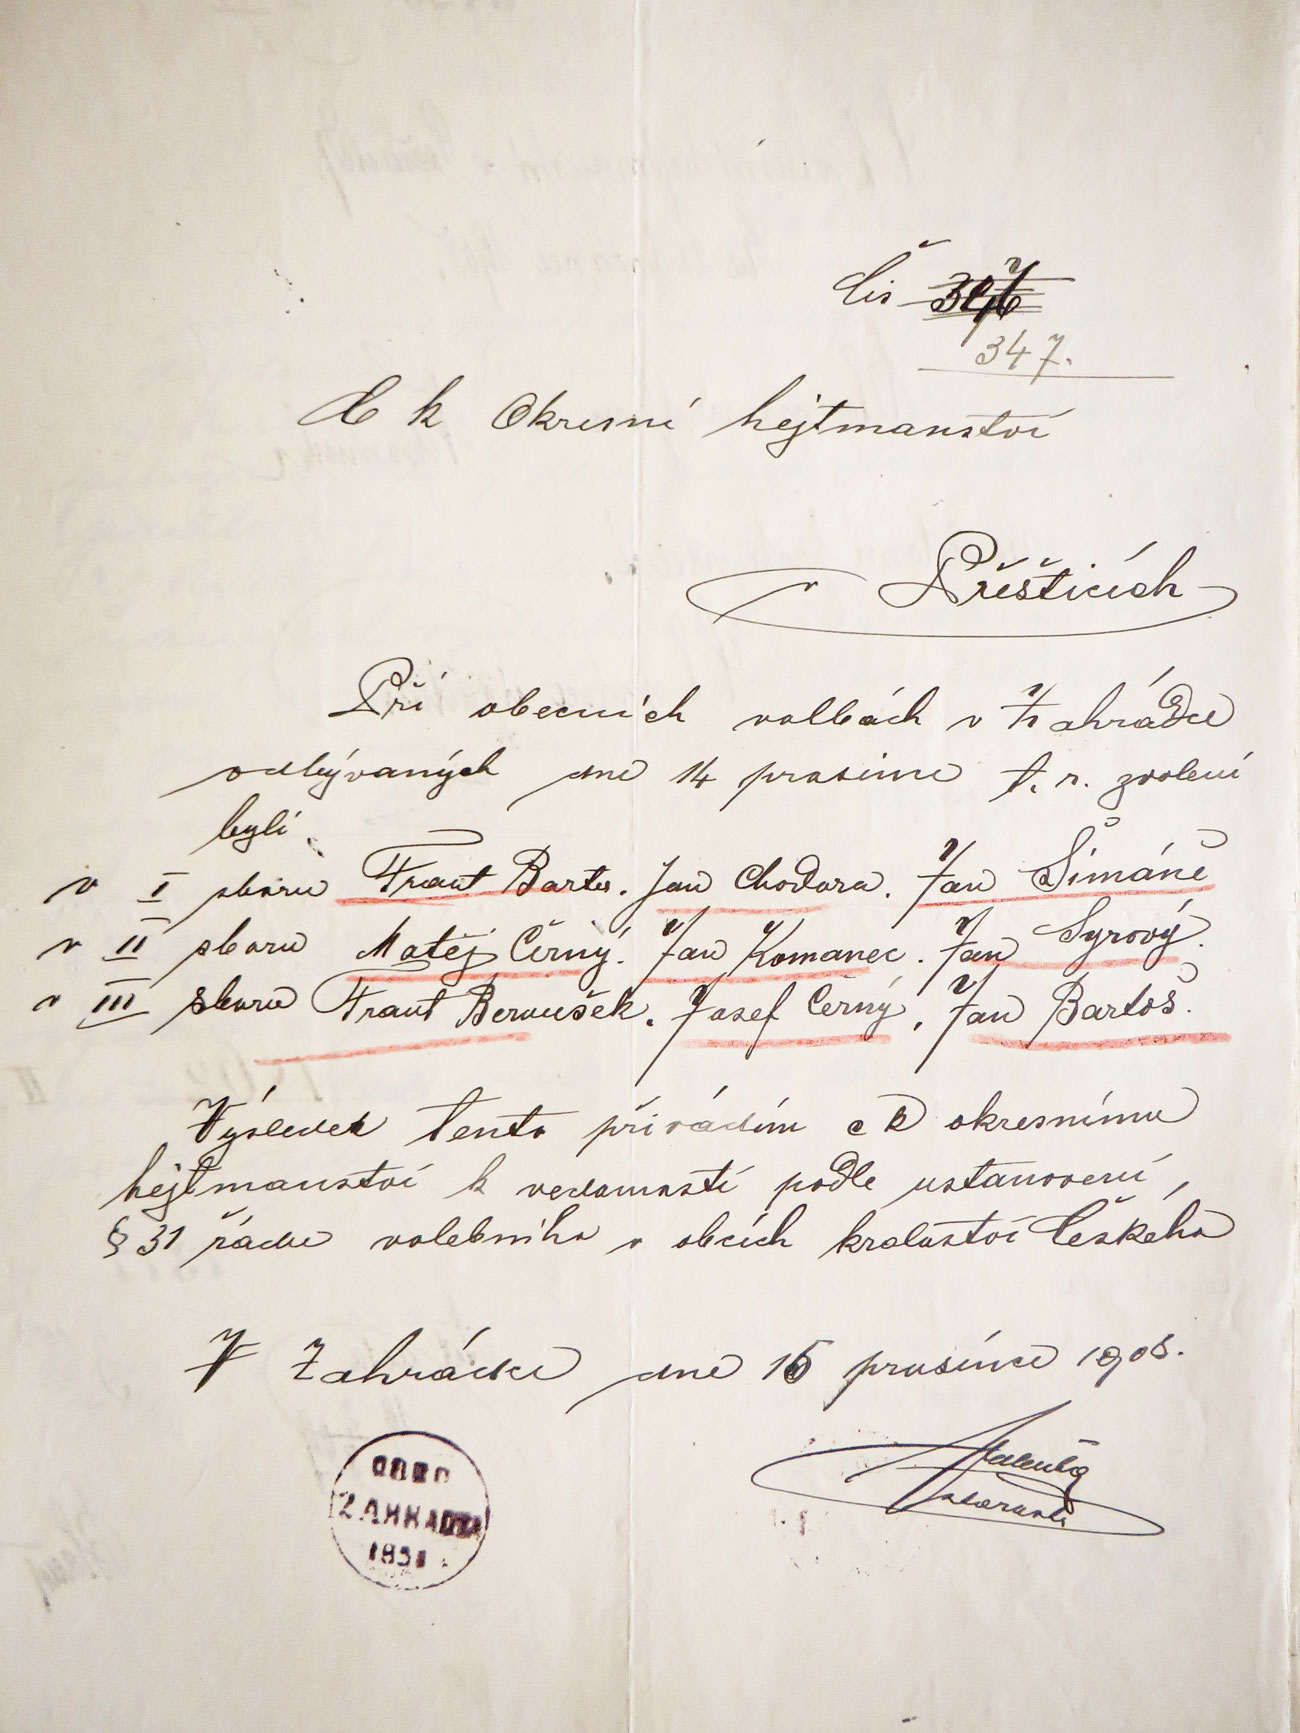 Čís 
347.
C k Okresní hejtmanství
v Přěšticích
Při obecních volbách v Zahrádce
odbývaných dne 14 prosince t. r. zvolení
byli
v I sboru Frant Bartoš. Jan Chodora. Jan Šimáně
v II sboru Matěj Černý. Jan Komanec. Jan Syrový.
v III sboru Frant Beroušek. Josef Černý, Jan Bartoš.
Výsledek tento přivádím c k okresnímu
hejtmanství k vedomostí podle ustanovení,
§ 31 řádu volebního v obcích kralostvi Českého
V Zahrádce dne 16 prosínce 1908.
OBEC
ZAHRADKA
starosta